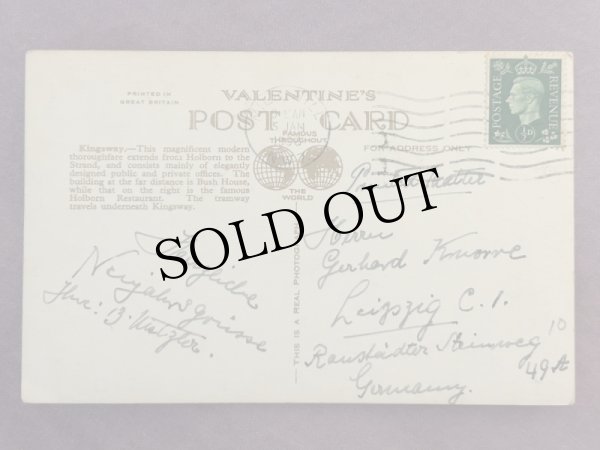 PRINTED IN
GREAT BRITAIN
VALENTINE'S
POST CARD
FAMOUS
THROUGHOUT
THE
WORLD
FOR ADDRESS ONLY
POSTAGE
REVENUE
½D
Kingsway.—This magnificent modern
thoroughfare extends from Holborn to the
Strand, and consists mainly of elegantly
designed public and private offices. The
building at the far distance is Bush House,
while that on the right is the famous
Holborn Restaurant. The tramway
travels underneath Kingsway.
THIS IS A REAL PHOTOGRAPH
SOLD OUT
Herzliche
Neujahrsgrüsse
Ihre: B. Metzler.
Printed Matter
Herrn
Gerhard Knorre
Leipzig C.1.
Ranstädter Steinweg 10
49A
Germany.